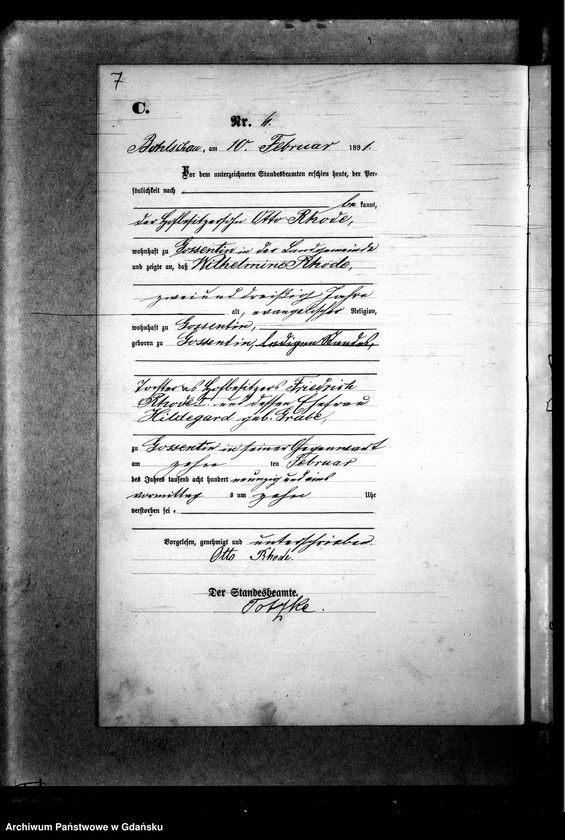 7
C.
Nr. 6.
Bohlschau, am 10. Februar 1891.
Vor dem unterzeichneten Standesbeamten erschien heute, der Per-
sönlichkeit nach
be kannt,
der Hofbesitzersohn Otto Rhode,
wohnhaft zu Gossentin in der Landgemeinde
und zeigte an, daß Wilhelmine Rhode,
zweiunddreißig Jahre
alt, evangelischer Religion,
wohnhaft zu Gossentin,
geboren zu Gossentin, ledigen Standes,
Tochter des Hofbesitzers Friedrich
Rhode und dessen Ehefrau
Hildegard geb. Grabe,
zu Gossentin in seiner Gegenwart
am zehn ten Februar
des Jahres tausend acht hundert neunzig und eins
vormittag s um zehn Uhr
verstorben sei.
Vorgelesen, genehmigt und unterschrieben
Otto Rhode.
Der Standesbeamte.
Archiwum Państwowe w Gdańsku